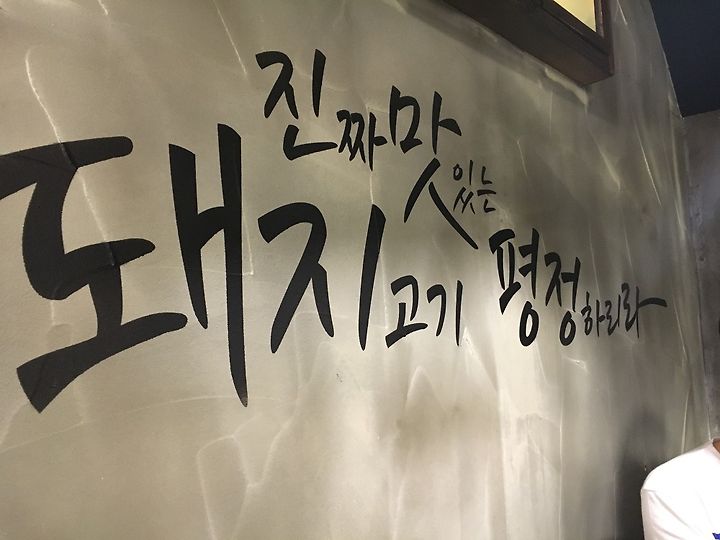 진짜 맛있는
돼지고기 평정하리라